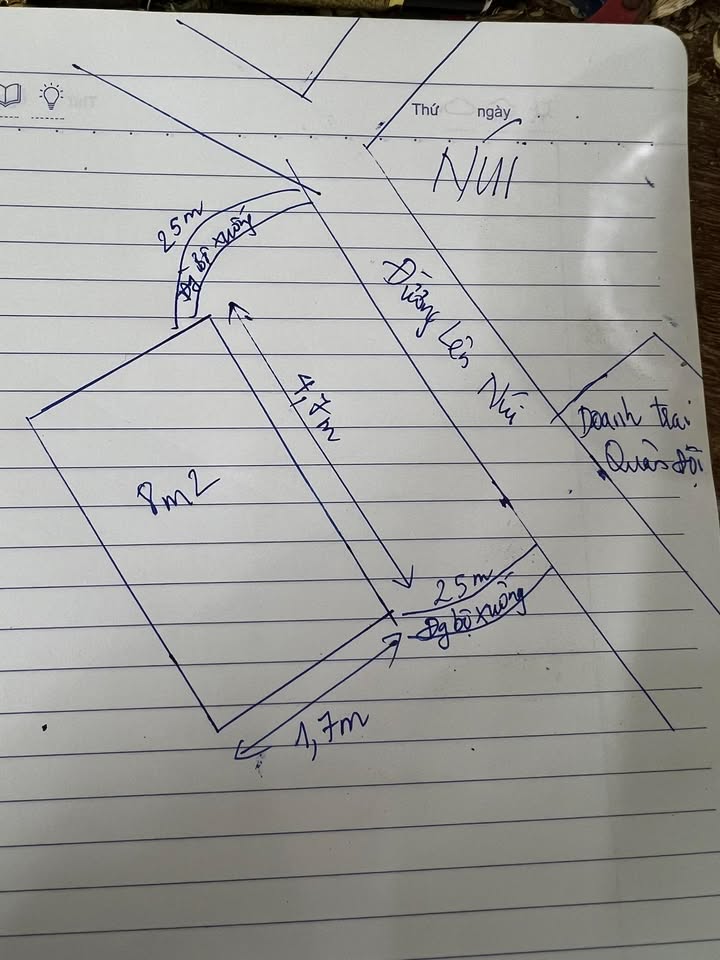 Thứ ngày
NÚI
25m
Đg bộ xuống
Đường Lên Núi
4,7m
Doanh trại
Quân đội
8m2
25m
Đg bộ xuống
1,7m